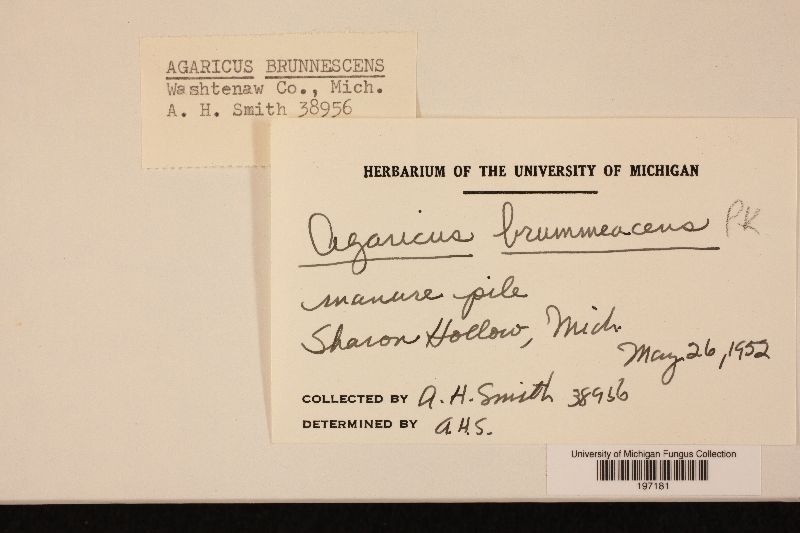 AGARICUS BRUNNESCENS
Washtenaw Co., Mich.
A. H. Smith 38956
HERBARIUM OF THE UNIVERSITY OF MICHIGAN
Agaricus brunnescens PK
manure pile
Sharon Hollow, Mich.
May 26, 1952
COLLECTED BY A. H. Smith 38956
DETERMINED BY A.H.S.
University of Michigan Fungus Collection
197181